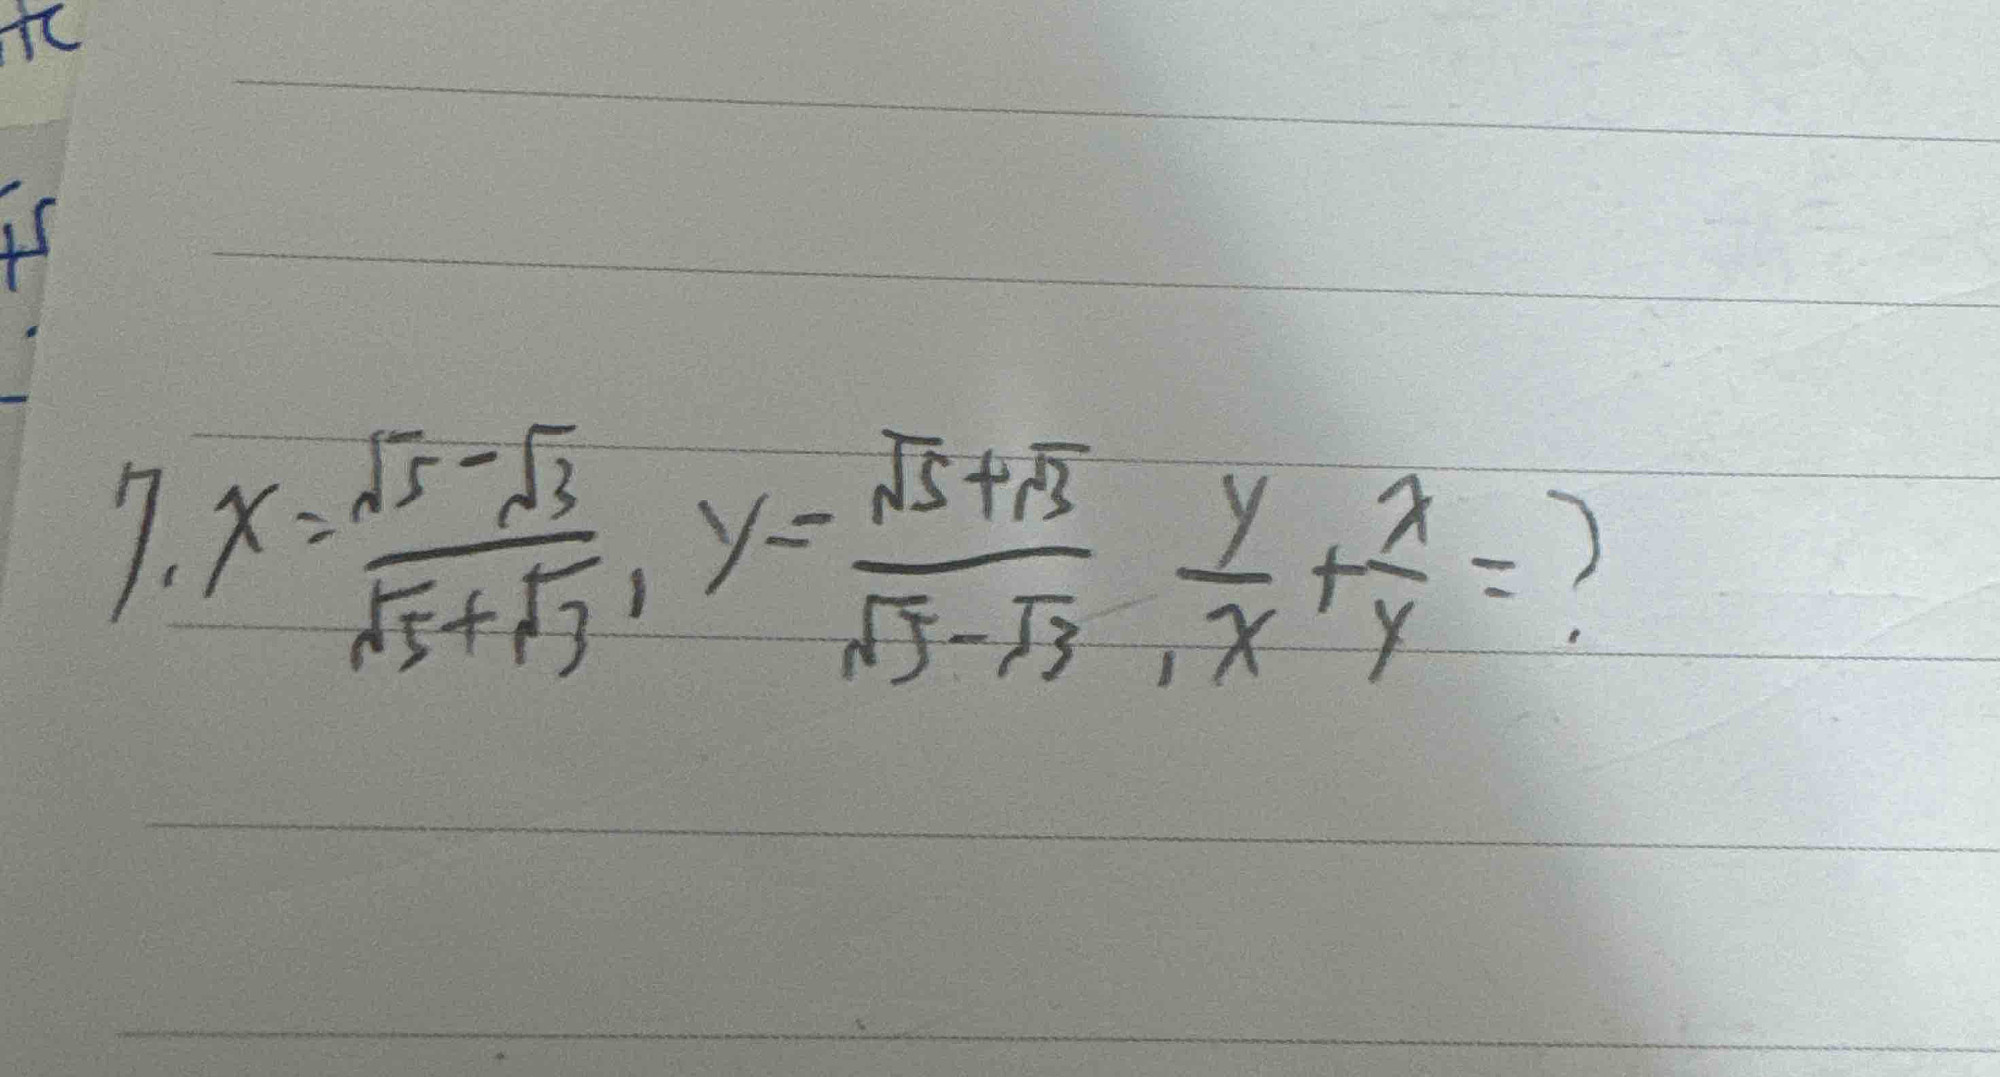 7. x = (√5 - √3)/(√5 + √3), y = (√5 + √3)/(√5 - √3), y/x + x/y = ?